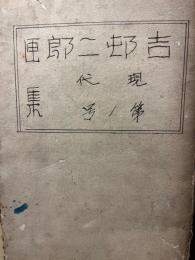 吉邨二郎画集
現代
第ノ号